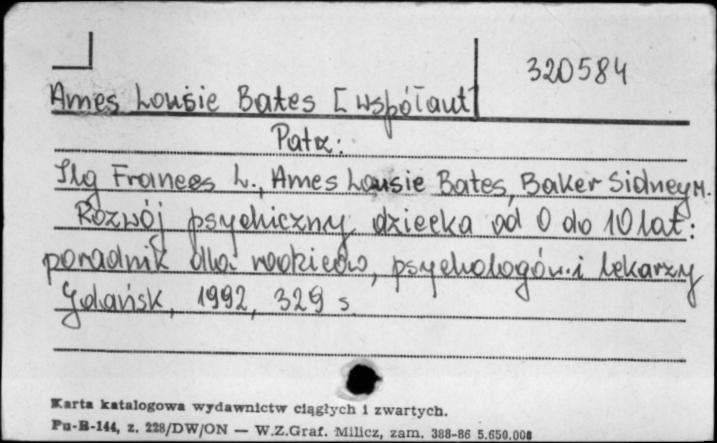 320584
Ames Lousie Bates [współaut]
Patrz:
Ilg Frances L., Ames Lousie Bates, Baker Sidney M.
Rozwój psychiczny dziecka od 0 do 10 lat:
poradnik dla rodziców, psychologów i lekarzy
Gdańsk, 1992, 329 s.
Karta katalogowa wydawnictw ciągłych i zwartych.
Pu-B-144, z. 228/DW/ON — W.Z.Graf. Milicz, zam. 388-86 5.650.000